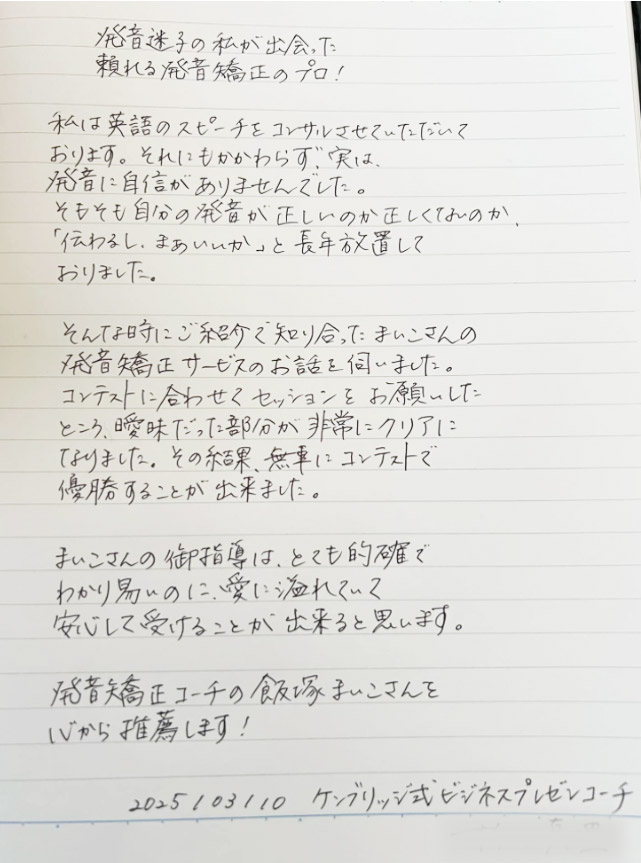 発音迷子の私が出会った
頼れる発音矯正のプロ!
私は英語のスピーチをコンサルさせていただいて
おります。それにもかかわらず、実は、
発音に自信がありませんでした。
そもそも自分の発音が正しいのか正しくないのか、
「伝わるし、まあいいか」と長年放置して
おりました。
そんな時にご紹介で知り合ったまいこさんの
発音矯正サービスのお話を伺いました。
コンテストに合わせてセッションをお願いした
ところ、曖昧だった部分が非常にクリアに
なりました。その結果、無事にコンテストで
優勝することが出来ました。
まいこさんの御指導は、とても的確で
わかり易いのに、愛に溢れていて
安心して受けることが出来ると思います。
発音矯正コーチの飯塚まいこさんを
心から推薦します!
2025/03/10 ケンブリッジ式ビジネスプレゼンコーチ